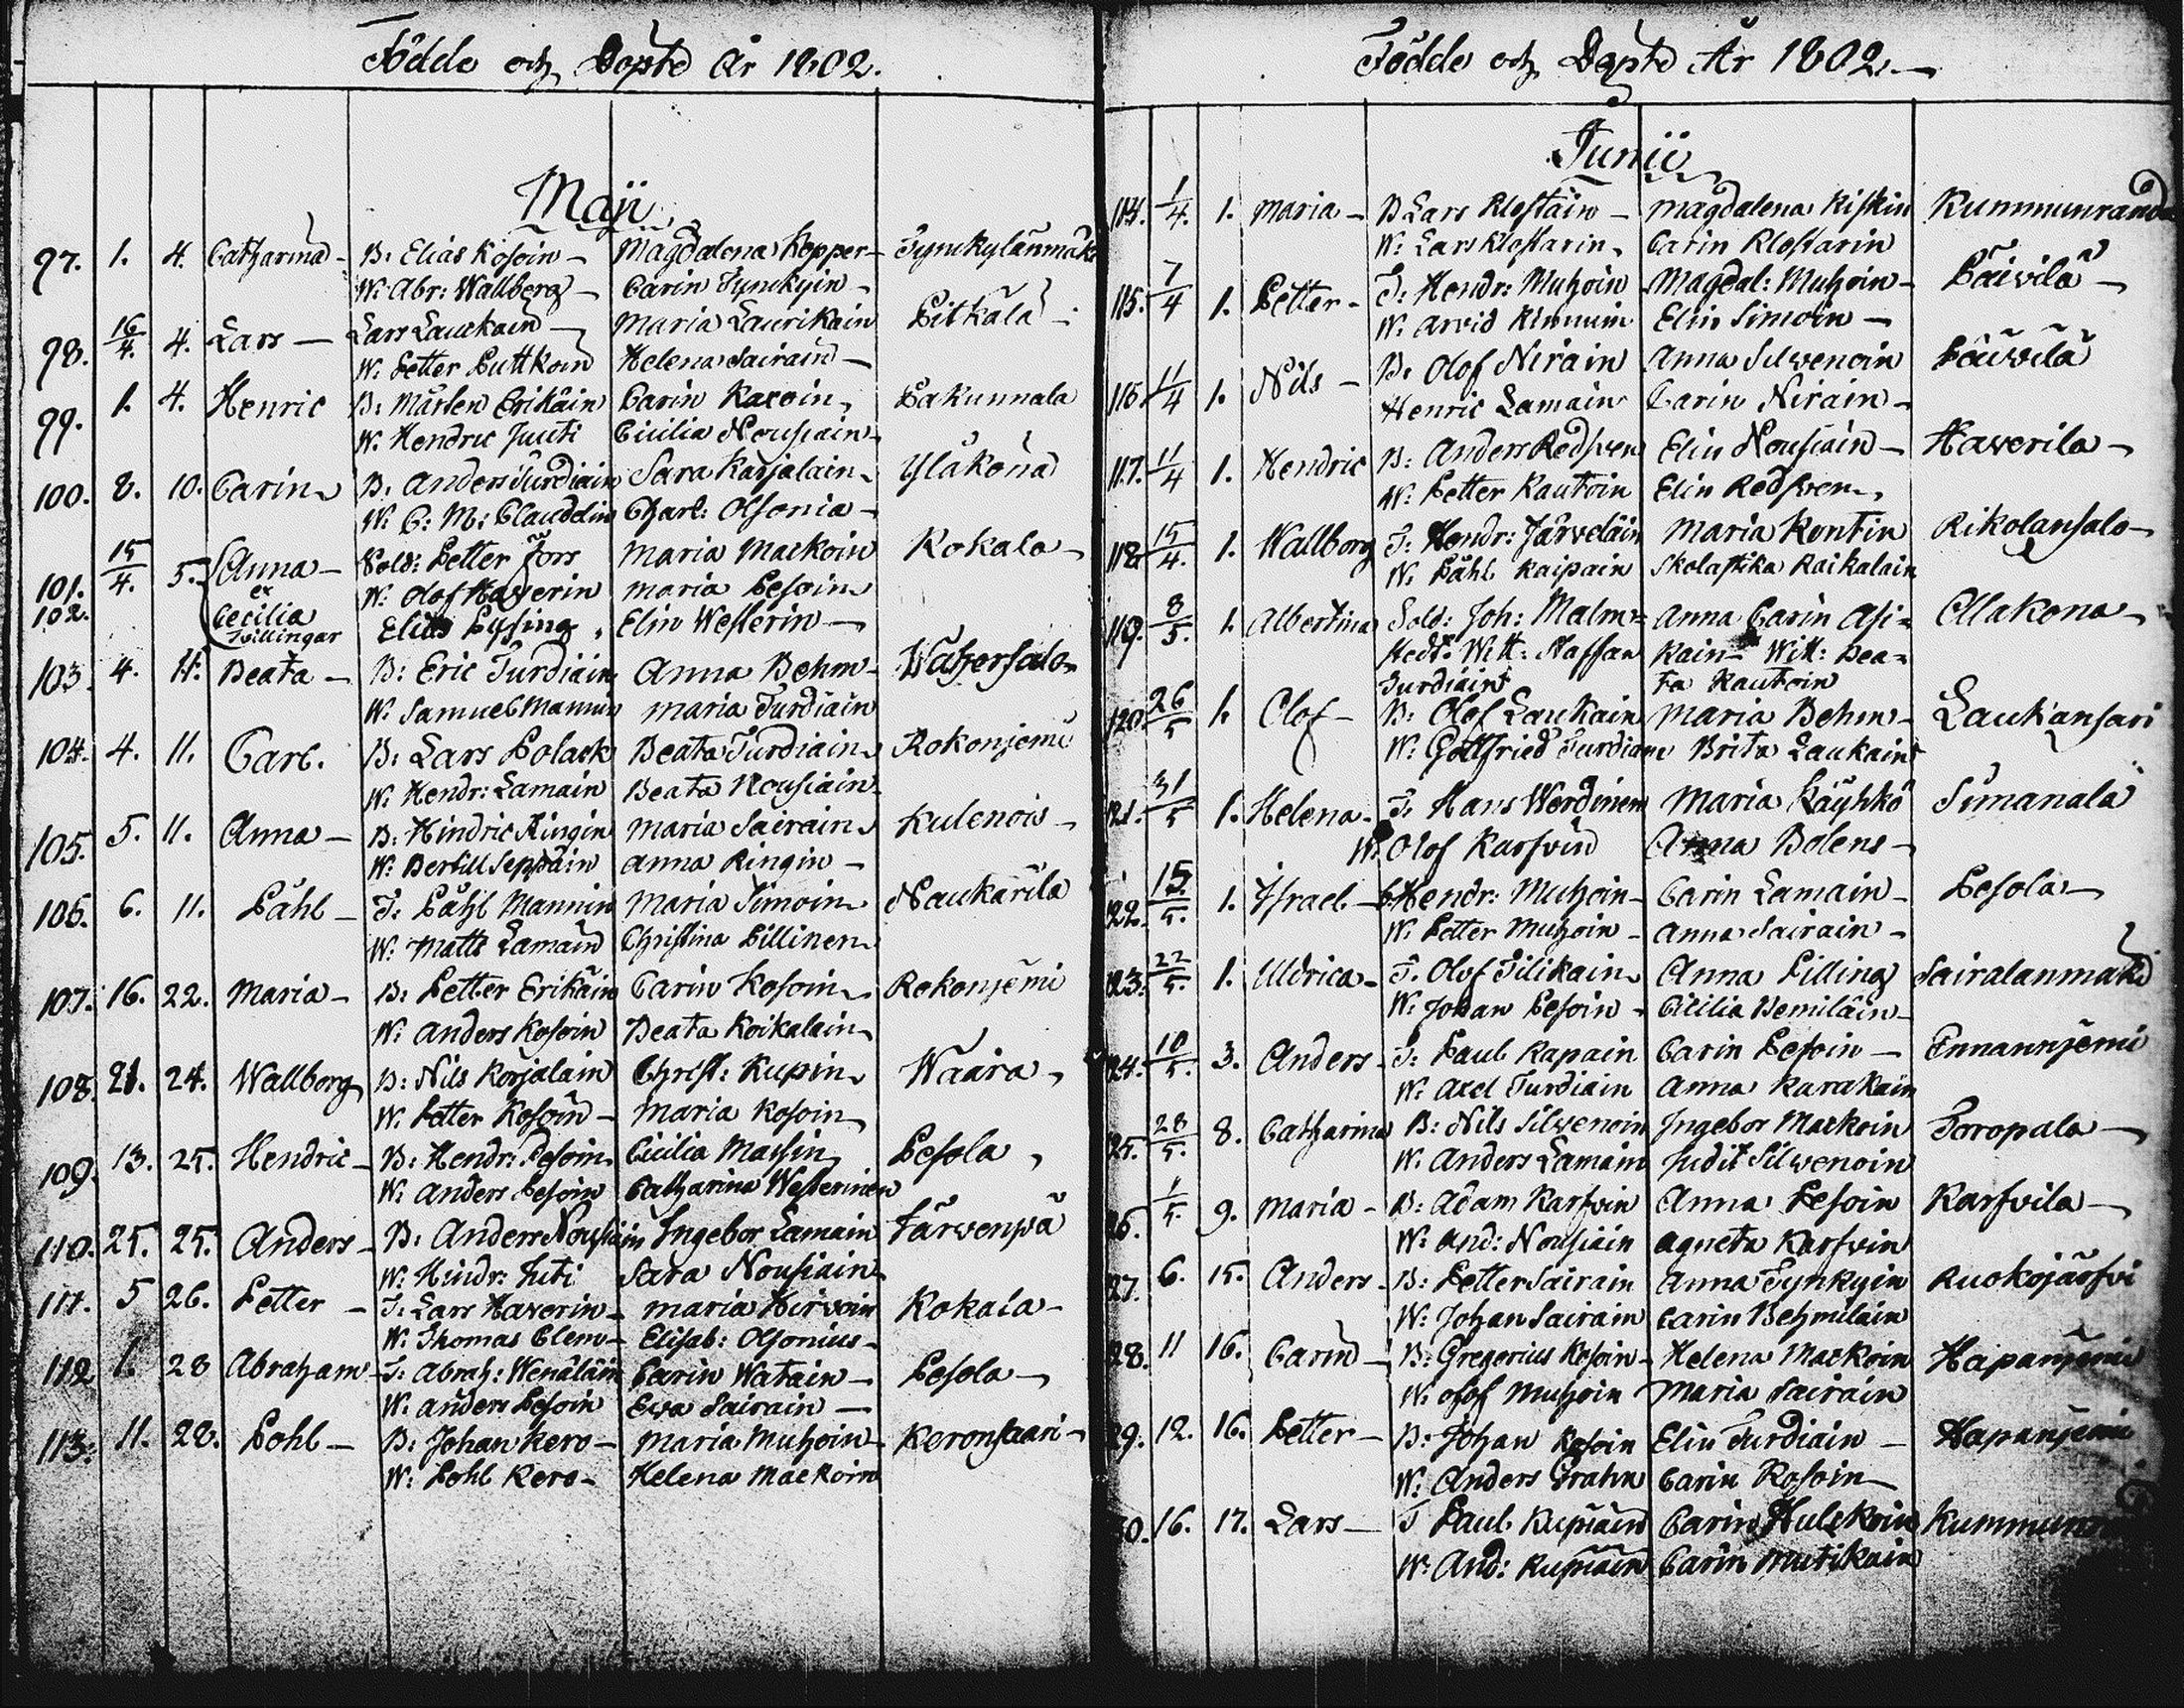 Födde och Döpte År 1802.
Maji
97. 1. 4. Catharina - B: Elias Kosoin - Magdalena Kopper - Tynckylänmäki
W: Abr: Wallberg - Carin Tynckyin -
98. 16/4. 4. Lars - Lars Laukain - Maria Laurikain Pitkälä -
W. Petter Puttkoin Helena Sairain -
99. 1. 4. Henric B: Mårten Erikäin Carin Karoin Pakunnala
W. Hendric Juuti Cicilia Nousiain
100. 8. 10. Carin B. Anders Turdiain Sara Karjalain Yläkona
W. C: M: Clauddlin Charl: Olsonia -
101. 15/4. 5. Anna - Sold: Petter Fors Maria Mackoin Kokala -
102. et W: Olof Haverin Maria Pesoin
Cecilia Elias Pysing, Elin Westerin -
Tvillingar
103. 4. 11. Beata - B: Eric Turdiain Anna Behm - Watzersalo
W. Samuel Mannin Maria Turdiain
104. 4. 11. Carl. B: Lars Polack Beata Turdiain Rokonjemi
W. Hendr: Lamain Beata Nousiain
105. 5. 11. Anna - B: Hindric Ringin Maria Sairain Kulenois -
W. Bertill Seppäin Anna Ringin -
106. 6. 11. Påhl - T: Påhl Mannin Maria Simoin Naukarila
W: Matts Lamain Christina Pillinen
107. 16. 22. Maria - B: Petter Erikäin Carin Kosoin Rokonjemi
W: Anders Kosoin Beata Koikalain
108. 21. 24. Wallborg B: Nils Korjalain Christ: Kupin Waara -
W. Petter Kosoin - Maria Kosoin
109. 13. 25. Hendric - B: Hendr: Pesoin Cicilia Massin Pesola,
W: Anders Pesoin Catharina Westerinen
110. 25. 25. Anders - B: Anders Nousiain Ingebor Lamain Järwenpä
W: Hindr: Juti Sara Nousiain
111. 5 26. Petter - T: Lars Haverin - Maria Hirvoin Kokala -
W: Thomas Clem - Elisab: Olsonius -
112 1. 28 Abraham - T: Abrah: Wenäläin Carin Watain - Pesola -
W: Anders Pesoin Ewa Sairain -
113. 11. 28. Pohl - B: Johan Kero - Maria Muhoin - Keronsaari -
W: Pohl Kero - Helena Mackoin
Födde och Döpte År 1802. -
Junii
114. 1/4. 1. Maria - B Lars Klostäin - Magdalena Kiskin Kummunranda
W. Lars Klostarin Carin Klostarin
115. 7/4 1. Petter - T: Hendr: Muhoin Magdal: Muhoin - Päivilä -
W: Arvid Kinnuin Elin Simoin -
116. 11/4 1. Nils - B: Olof Niräin Anna Silvenoin Päivilä
Henric Lamain Carin Niräin -
117. 11/4 1. Hendric B: Anders Redsven Elin Nousiain - Haverila -
W: Petter Kautoin Elin Redsven
118. 15/4. 1. Wallborg T: Hendr: Järveläin Maria Kontin Rikolansalo -
W. Påhl Kaipain Skolastika Raikalain
119. 8/5. 1. Albertina Sold: Joh: Malm- Anna Carin Asi- Ollakona -
stedt. Witt: Staffan kain - Witt: Bea-
Turdiain ta Kautoin
120. 26/5 1. Olof - B: Olof Laukain Maria Behm - Laukansari
W: Gottfried Turdiain Brita Laukain
121. 31/5 1. Helena - T: Hans Werdinen Maria Käyhkö Simanala
W: Olof Karsvin Anna Bolens -
122. 15/5. 1. Israel - Hendr: Muhoin - Carin Lamain - Pesola -
W. Petter Muhoin - Anna Sairain -
123. 22/5. 1. Uldrica - T: Olof Tilikain Anna Pilling Sairalanmäki
W: Johan Pesoin - Cicilia Demiläin -
124. 10/5. 3. Anders - T: Paul Kapain Carin Pesoin - Ennannjemi
W. Axel Turdiain Anna Karakain
125. 28/5. 8. Catharina B: Nils Silvenoin Ingebor Mackoin Toropala -
W. Anders Lamain Judit Silvenoin
126. 1/5. 9. Maria - B: Adam Karsvin Anna Pesoin Karsvila -
W: And: Nousiain Agneta Karsvin
127. 6. 15. Anders - B: Petter Sairain Anna Tynkyin Ruokojärfvi
W: Johan Sairain Carin Behmiläin
128. 11 16. Carin - B: Gregorius Kosoin - Helena Mackoin Hapanjemi
W. Olof Muhoin Maria Sairain
129. 12. 16. Petter - B: Johan Kosoin Elin Turdiain - Hapanjemi
W. Anders Grahn Carin Kosoin -
130. 16. 17. Lars - T Paul Kupiain Carin Hulckoin
W. And: Kupiain Carin Mutikain